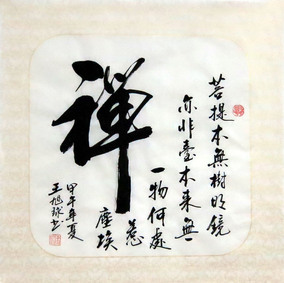 禪
菩提本無樹明鏡
亦非臺本来無
一物何處
惹
塵埃
甲午年夏
王旭球书